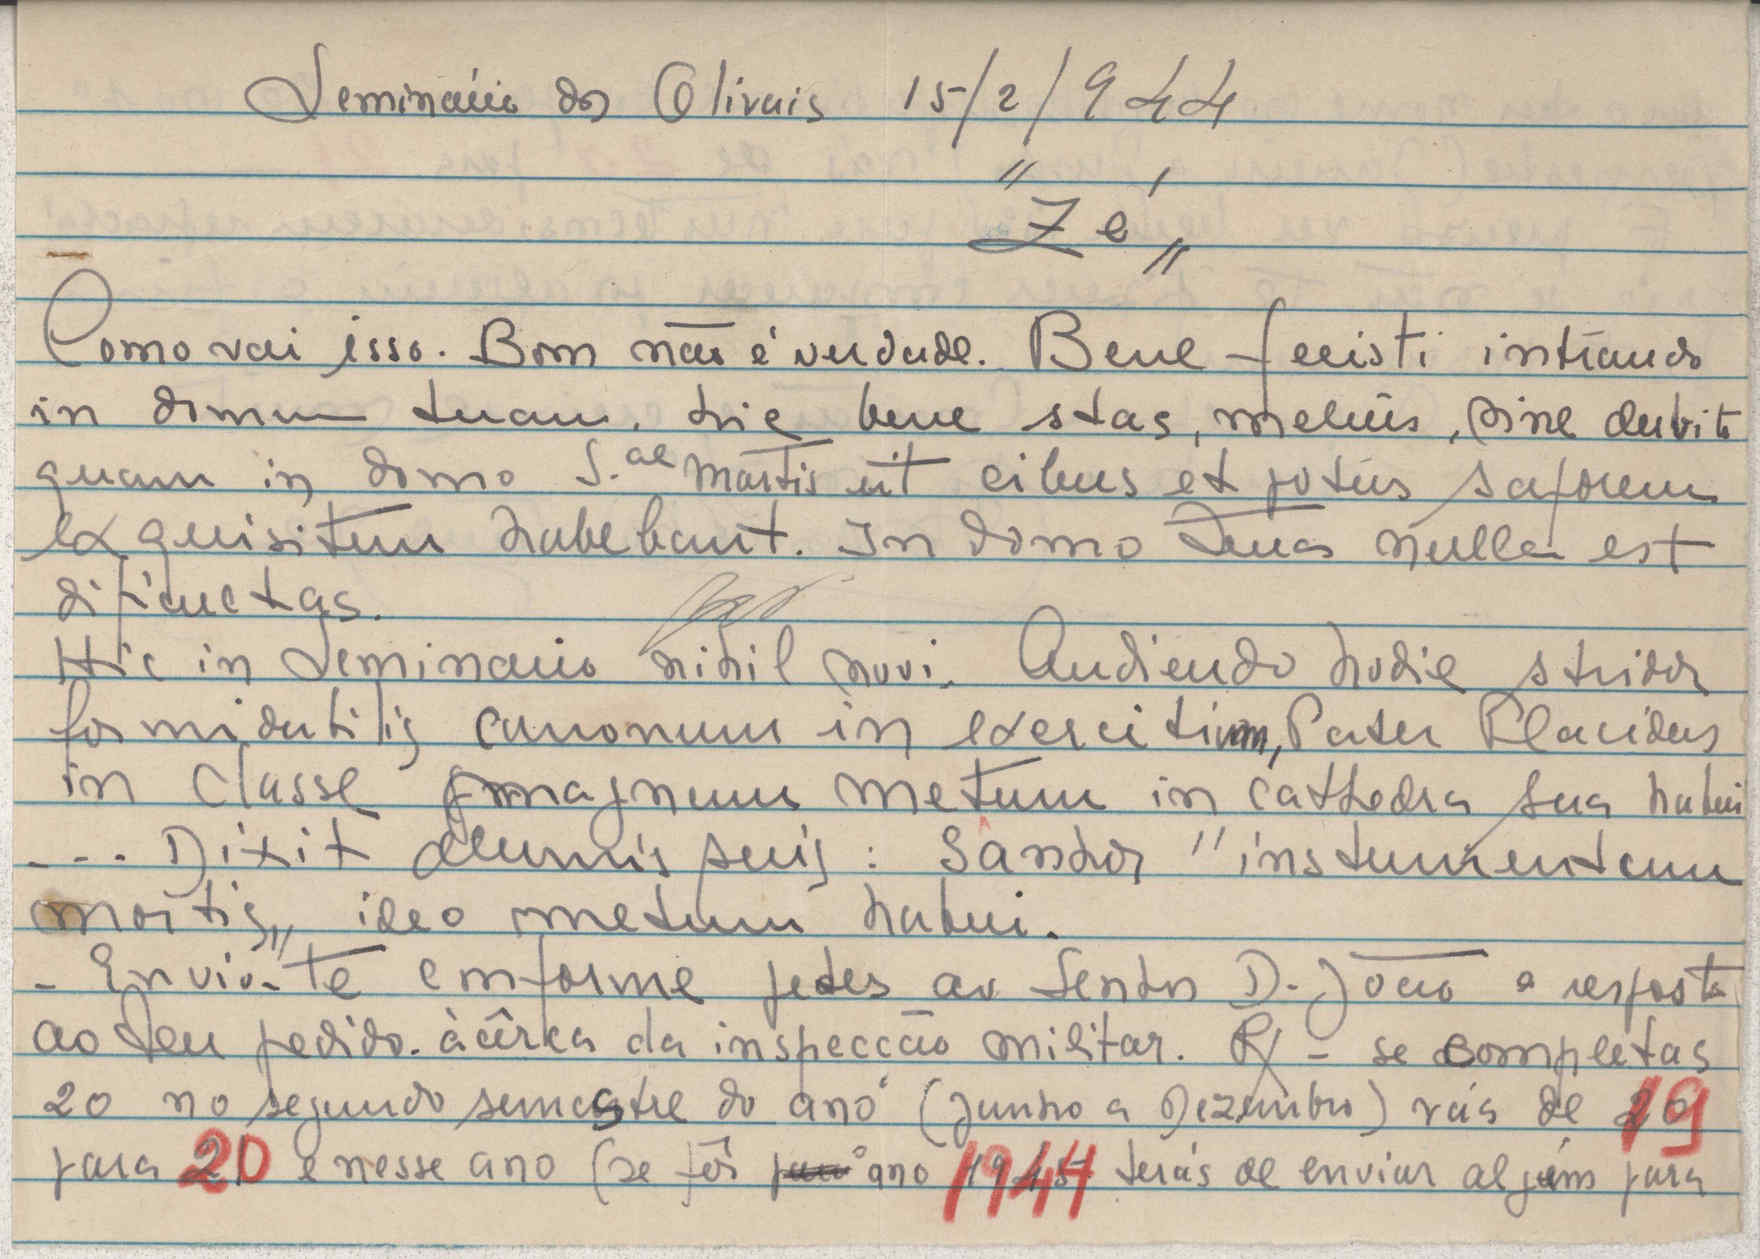 Seminário dos Olivais 15/2/944
"Zé"
Como vai isso. Bom não é verdade. Bene fecisti intrando
in domum tuam. Hic bene stas, melius, sine dubit
quam in domo S.ae Martis ut cibus et potus saporem
exquisitum habebant. In domo tua nulla est
Hic in Seminario nihil novi. Audiendo hodie stridor
formidabilis canonum in exercitium, Pater Placidus
in classe magnum metum in cathedra sua habui
... Dixit alumnis suis: Sandor "instumentum
mortis" ideo metum habui.
- Envio-te conforme pedes ao Senhor D. João a resposta
ao teu pedido. àcêrca da inspecção militar. R/ - se completas
20 no segundo semestre do ano (Junho a Dezembro) vás de 19
para 20 e nesse ano (se fôr ano 1944 terás de enviar alguém para